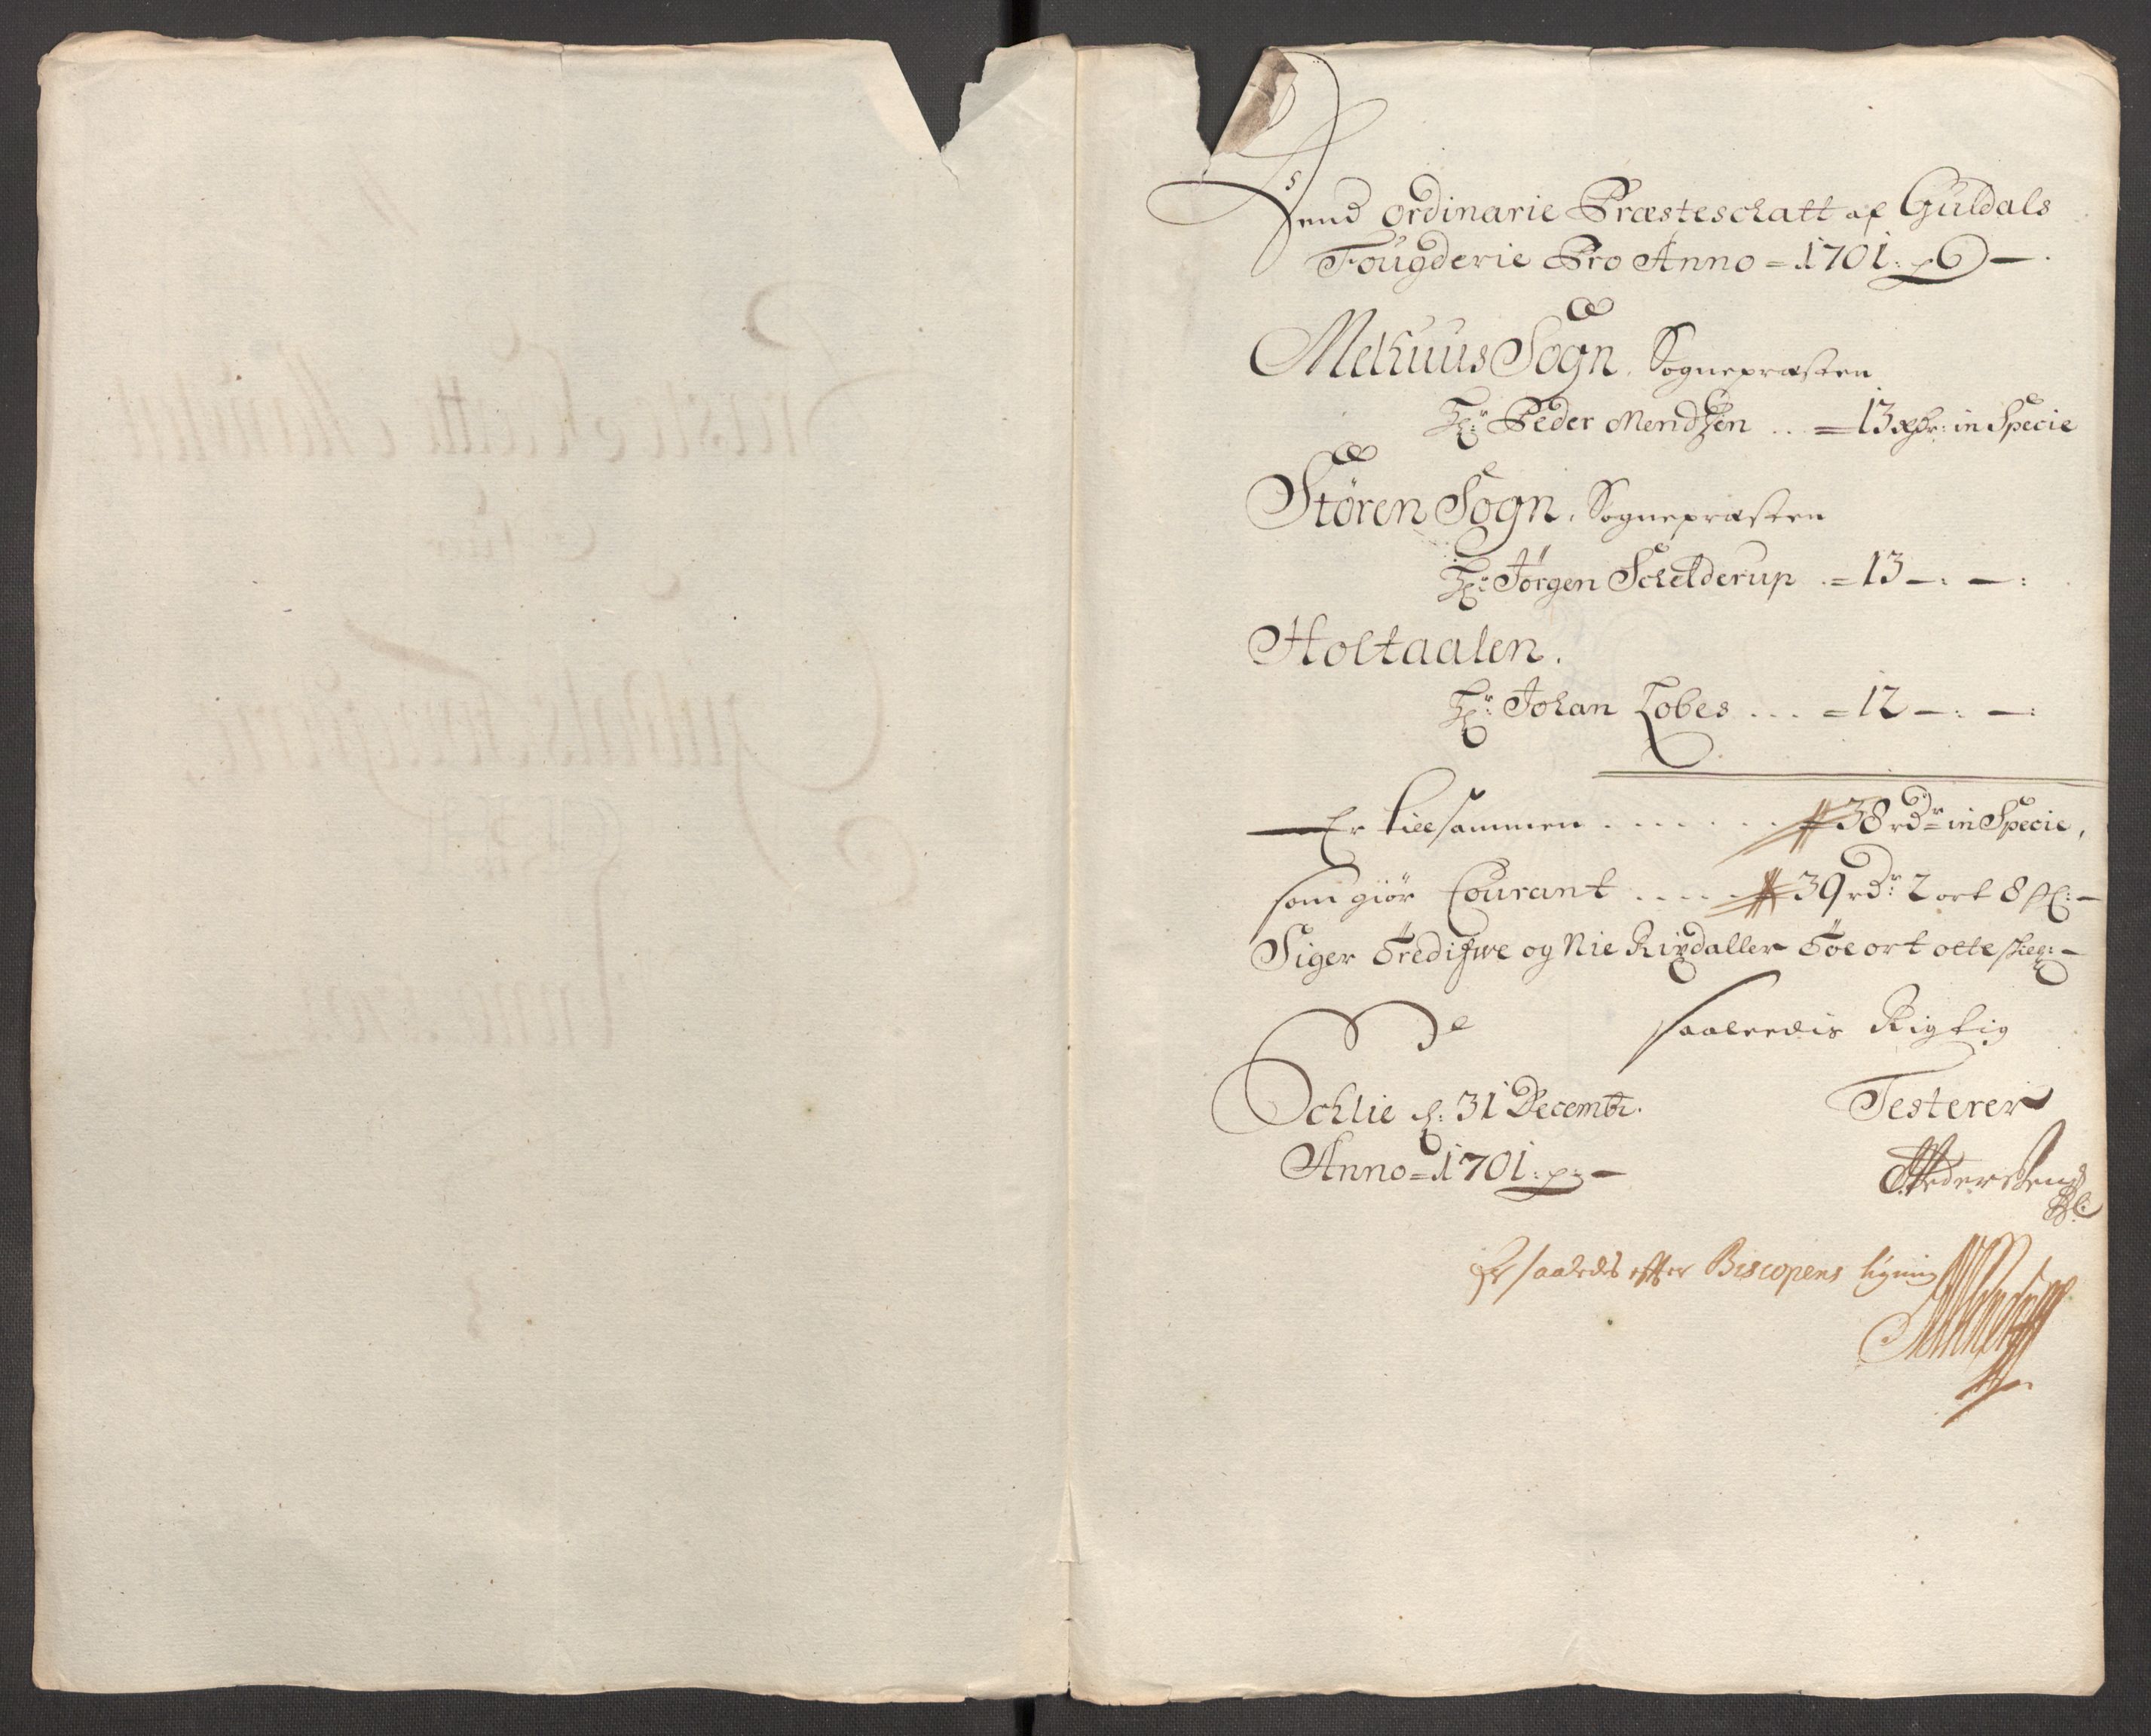 Dend ordinarie Præsteschatt af Guldals
Fougderie Pro Anno = 1701:
Melhuus Sogn, Sognepræsten
Hr: Peder Mendtzen .. = 13 rdr: in Specie
Stören Sogn, Sognepræsten
Hr: Jörgen Schelderup . = 13 — : — :
Holtaalen.
Hr: Johan Lobes ... = 12 — : — :
Er tilsammen ....... 38 rdr in Specie,
som giör Courant ..... 39 rdr: 2 ort 8 sk: —
Siger Tredifve og Nie Rixdaller Töe ort otte skel: —
saaledis Rigtig
Schlie d: 31 Decembr.
Testerer
Anno = 1701:
Er saaledis efter Biscopens ligning